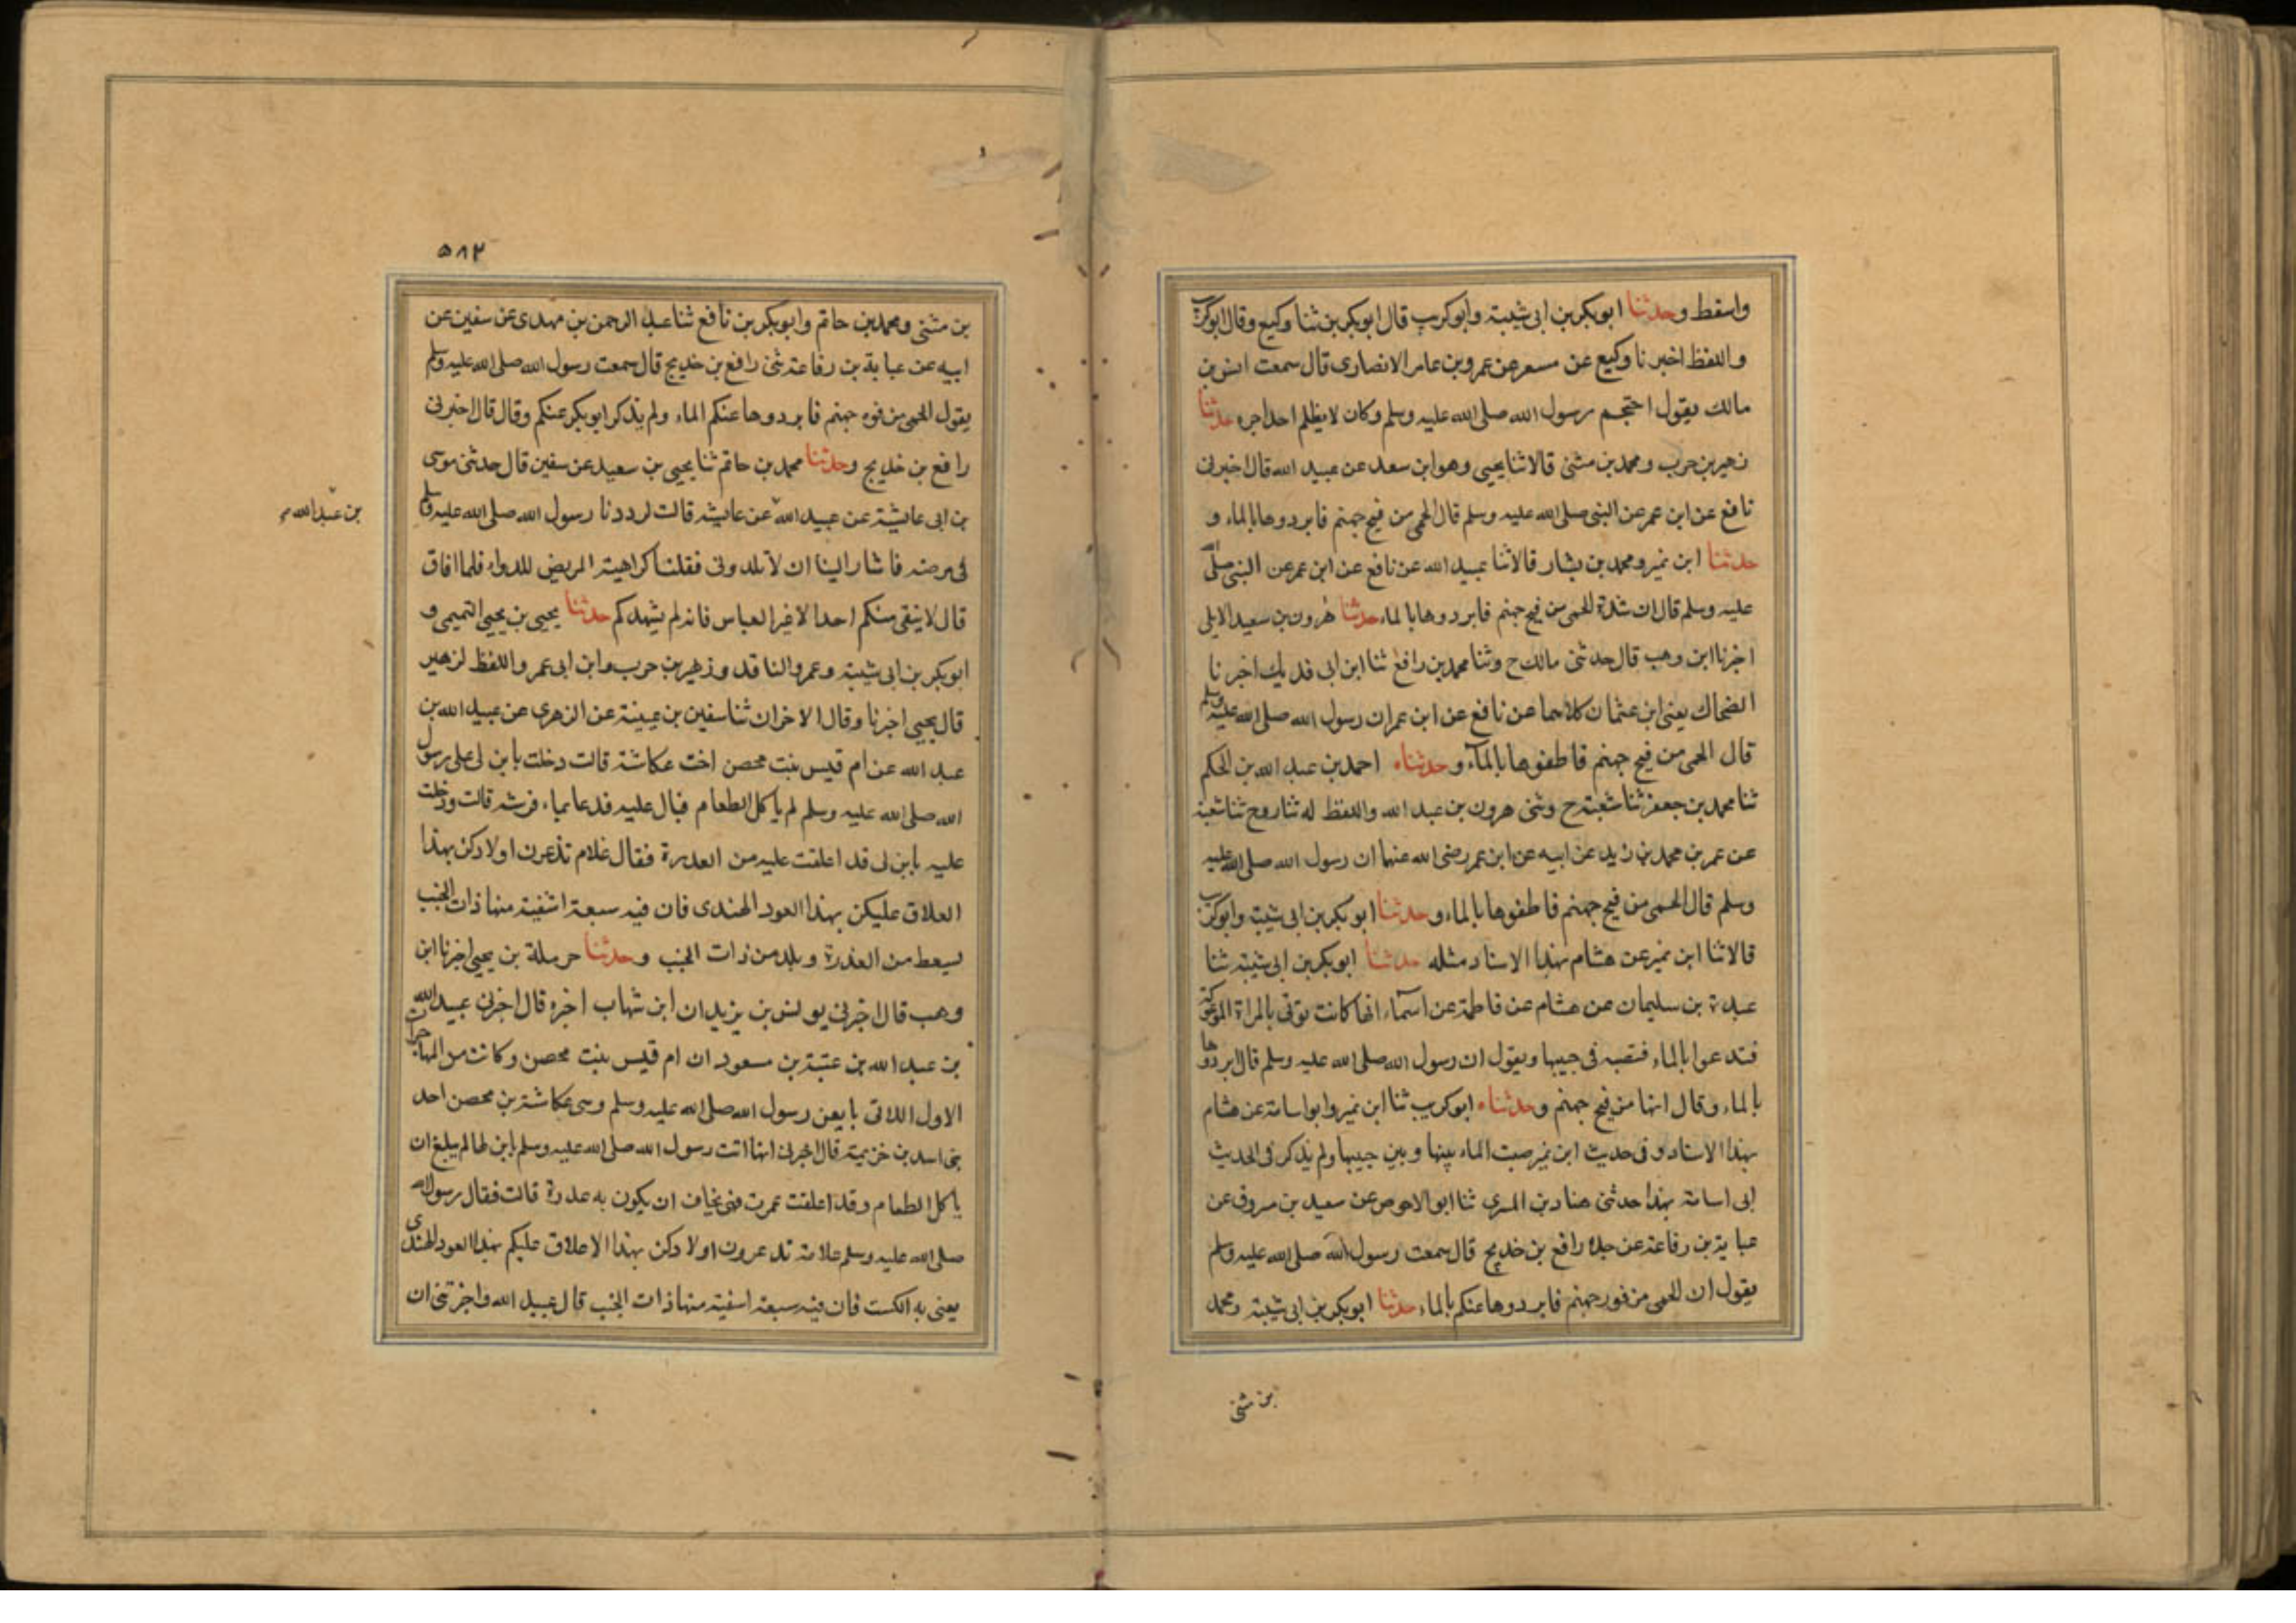 واسقط وحدثنا ابوبكر بن ابى شيبة وابوكريب قال ابوبكر بن ثنا وكيع وقال ابوكريب
واللفظ اخبرنا وكيع عن مسعر عن عمرو بن عامر الانصارى قال سمعت انس بن
مالك يقول احتجم رسول الله صلى الله عليه وسلم وكان لا يظلم احدا اجره حدثنا
زهير بن حرب ومحمد بن مثنى قالا ثنا يحيى وهو ابن سعد عن عبيد الله قال اخبرنى
نافع عن ابن عمر عن النبى صلى الله عليه وسلم قال الحمى من فيح جهنم فابردوها بالماء و
حدثنا ابن نمير ومحمد بن بشار قالا ثنا عبيد الله عن نافع عن ابن عمر عن النبى صلى الله
عليه وسلم قال ان شدة الحمى من فيح جهنم فابردوها بالماء حدثنا هرون بن سعيد الايلى
اخبرنا ابن وهب قال حدثنى مالك ح وثنا محمد بن رافع ثنا ابن ابى فديك اخبرنا
الضحاك يعنى ابن عثمان كلاهما عن نافع عن ابن عمر ان رسول الله صلى الله عليه وسلم
قال الحمى من فيح جهنم فاطفوها بالماء وحدثناه احمد بن عبد الله بن الحكم
ثنا محمد بن جعفر ثنا شعبة ح وثنى هرون بن عبد الله واللفظ له ثنا روح ثنا شعبة
عن عمر بن محمد بن زيد عن ابيه عن ابن عمر رضى الله عنهما ان رسول الله صلى الله عليه
وسلم قال الحمى من فيح جهنم فاطفوها بالماء وحدثنا ابوبكر بن ابى شيبة وابوكريب
قالا ثنا ابن نمير عن هشام بهذا الاسناد مثله حدثنا ابوبكر بن ابى شيبة ثنا
عبدة بن سليمان عن هشام عن فاطمة عن اسماء انها كانت توتى بالمراة الموعوكة
فتدعوا بالماء فتصبه فى جيبها ويقول ان رسول الله صلى الله عليه وسلم قال ابردوها
بالماء وقال انها من فيح جهنم وحدثناه ابوكريب ثنا ابن نمير وابو اسامة عن هشام
بهذا الاسناد و فى حديث ابن نمير صبت الماء بينها وبين جيبها ولم يذكر فى الحديث
ابى اسامة بهذا حدثنى هناد بن السرى ثنا ابو الاحوص عن سعيد بن مسروق عن
عباية بن رفاعة عن جده رافع بن خديج قال سمعت رسول الله صلى الله عليه وسلم
يقول ان الحمى من فور جهنم فابردوها عنكم بالماء حدثنا ابوبكر بن ابى شيبة ومحمد
بن مثنى
٥٨٢
بن مثنى ومحمد بن حاتم وابوبكر بن نافع ثنا عبد الرحمن بن مهدى عن سفين عن
ابيه عن عباية بن رفاعة ثنى رافع بن خديج قال سمعت رسول الله صلى الله عليه وسلم
يقول الحمى من فوه جهنم فابردوها عنكم الماء ولم يذكر ابوبكر عنكم وقال قال اخبرنى
رافع بن خديج وحدثنا محمد بن حاتم ثنا يحيى بن سعيد عن سفين قال حدثنى موسى
بن ابى عائشة عن عبيد الله عن عائشة قالت لددنا رسول الله صلى الله عليه وسلم
بن عبد الله
فى مرضه فاشار الينا ان لا تلدونى فقلنا كراهية المريض للدواء فلما افاق
قال لا يبقى منكم احدا الا غير العباس فانه لم يشهدكم حدثنا يحيى بن يحيى التميمى و
ابوبكر بن ابى شيبة وعمرو الناقد وزهير بن حرب وابن ابى عمر واللفظ لزهير
قال يحيى اخبرنا وقال الاخران ثنا سفين بن عيينة عن الزهرى عن عبيد الله بن
عبد الله عن ام قيس بنت محصن اخت عكاشة قالت دخلت بابن لى على رسول
الله صلى الله عليه وسلم لم ياكل الطعام فبال عليه فدعا بماء فرشه قالت ودخلت
عليه بابن لى قد اعلقت عليه من العدرة فقال غلام تذعرن اولادكن بهذا
العلاق عليكن بهذا العود الهندى فان فيه سبعة اشفية منها ذات الجنب
يسعط من العذرة ويلد من ذات الجنب وحدثنا حرملة بن يحيى اخبرنا ابن
وهب قال اخبرنى يونس بن يزيد ان ابن شهاب اخبره قال اخبرنى عبيد الله
بن عبد الله بن عتبة بن مسعود ان ام قيس بنت محصن وكانت من المهاجرات
الاول اللاتى بايعن رسول الله صلى الله عليه وسلم وهى عكاشة بن محصن احد
بنى اسد بن خزيمة قال اخبرنى انها اتت رسول الله صلى الله عليه وسلم بابن لها لم يبلغ ان
ياكل الطعام وقد اعلقت عمرت فهى تخاف ان يكون به عدرة قالت فقال رسول الله
صلى الله عليه وسلم علامة تدعرون اولادكن بهذا الاعلاق عليكم بهذا العود الهندى
يعنى به الكست فان فيه سبعة اسفية منها ذات الجنب قال عبيد الله واخبرتنى ان